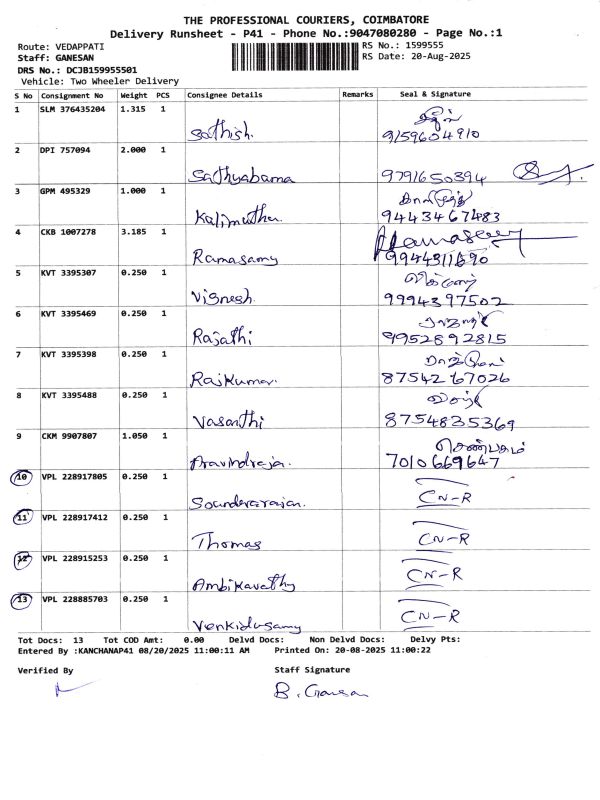 THE PROFESSIONAL COURIERS, COIMBATORE
Delivery Runsheet - P41 - Phone No.:9047080280 - Page No.:1
Route: VEDAPPATI RS No.: 1599555
Staff: GANESAN RS Date: 20-Aug-2025
DRS No.: DCJB159955501
Vehicle: Two Wheeler Delivery
S No Consignment No Weight PCS Consignee Details Remarks Seal & Signature
1 SLM 376435204 1.315 1
Sathish. 9159604910
2 DPI 757094 2.000 1
Sathyabama 9791650394
3 GPM 495329 1.000 1
Kalimuthu. 9443467483
4 CKB 1007278 3.185 1 Ramasamy
Ramasamy 9944311690
5 KVT 3395307 0.250 1
Vignesh. 9994397502
6 KVT 3395469 0.250 1
Rajathi 9952892815
7 KVT 3395398 0.250 1
Rajkumar. 8754267026
8 KVT 3395488 0.250 1
Vasanthi 8754835369
9 CKM 9907807 1.050 1 செண்பகம்
Aravindraja. 7010669647
10 VPL 228917805 0.250 1
Sounderarajan. CN-R
11 VPL 228917412 0.250 1
Thomas CN-R
12 VPL 228915253 0.250 1
Ambikavathy CN-R
13 VPL 228885703 0.250 1
Venkidusamy CN-R
Tot Docs: 13 Tot COD Amt: 0.00 Delvd Docs: Non Delvd Docs: Delvy Pts:
Entered By :KANCHANAP41 08/20/2025 11:00:11 AM Printed On: 20-08-2025 11:00:22
Verified By Staff Signature